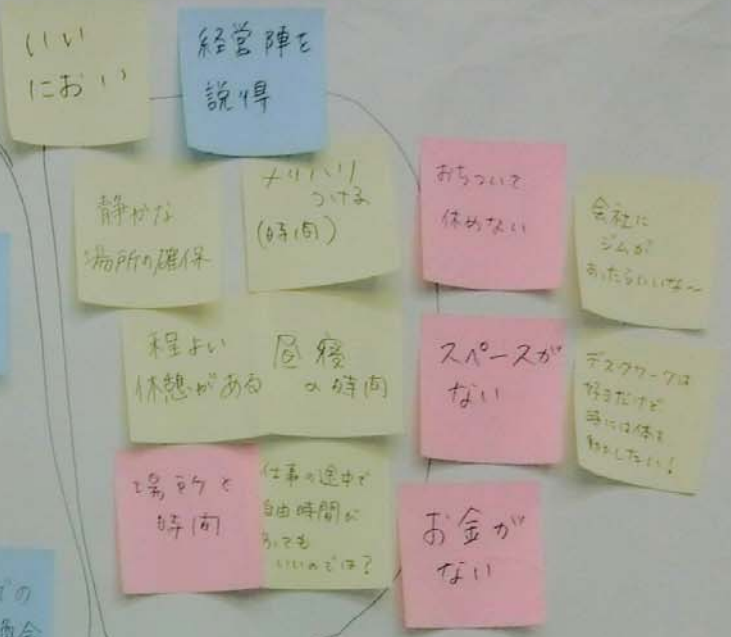 いい
におい
経営陣を
説得
静かな
場所の確保
メリハリ
つける
(時間)
おちついて
休めない
会社に
ジムが
あったらいいな〜
程よい
休憩がある
昼寝
の時間
スペースが
ない
デスクワークは
好きだけど
時には体を
動かしたい!
場所と
時間
仕事の途中で
自由時間が
あっても
いいのでは?
お金が
ない
の